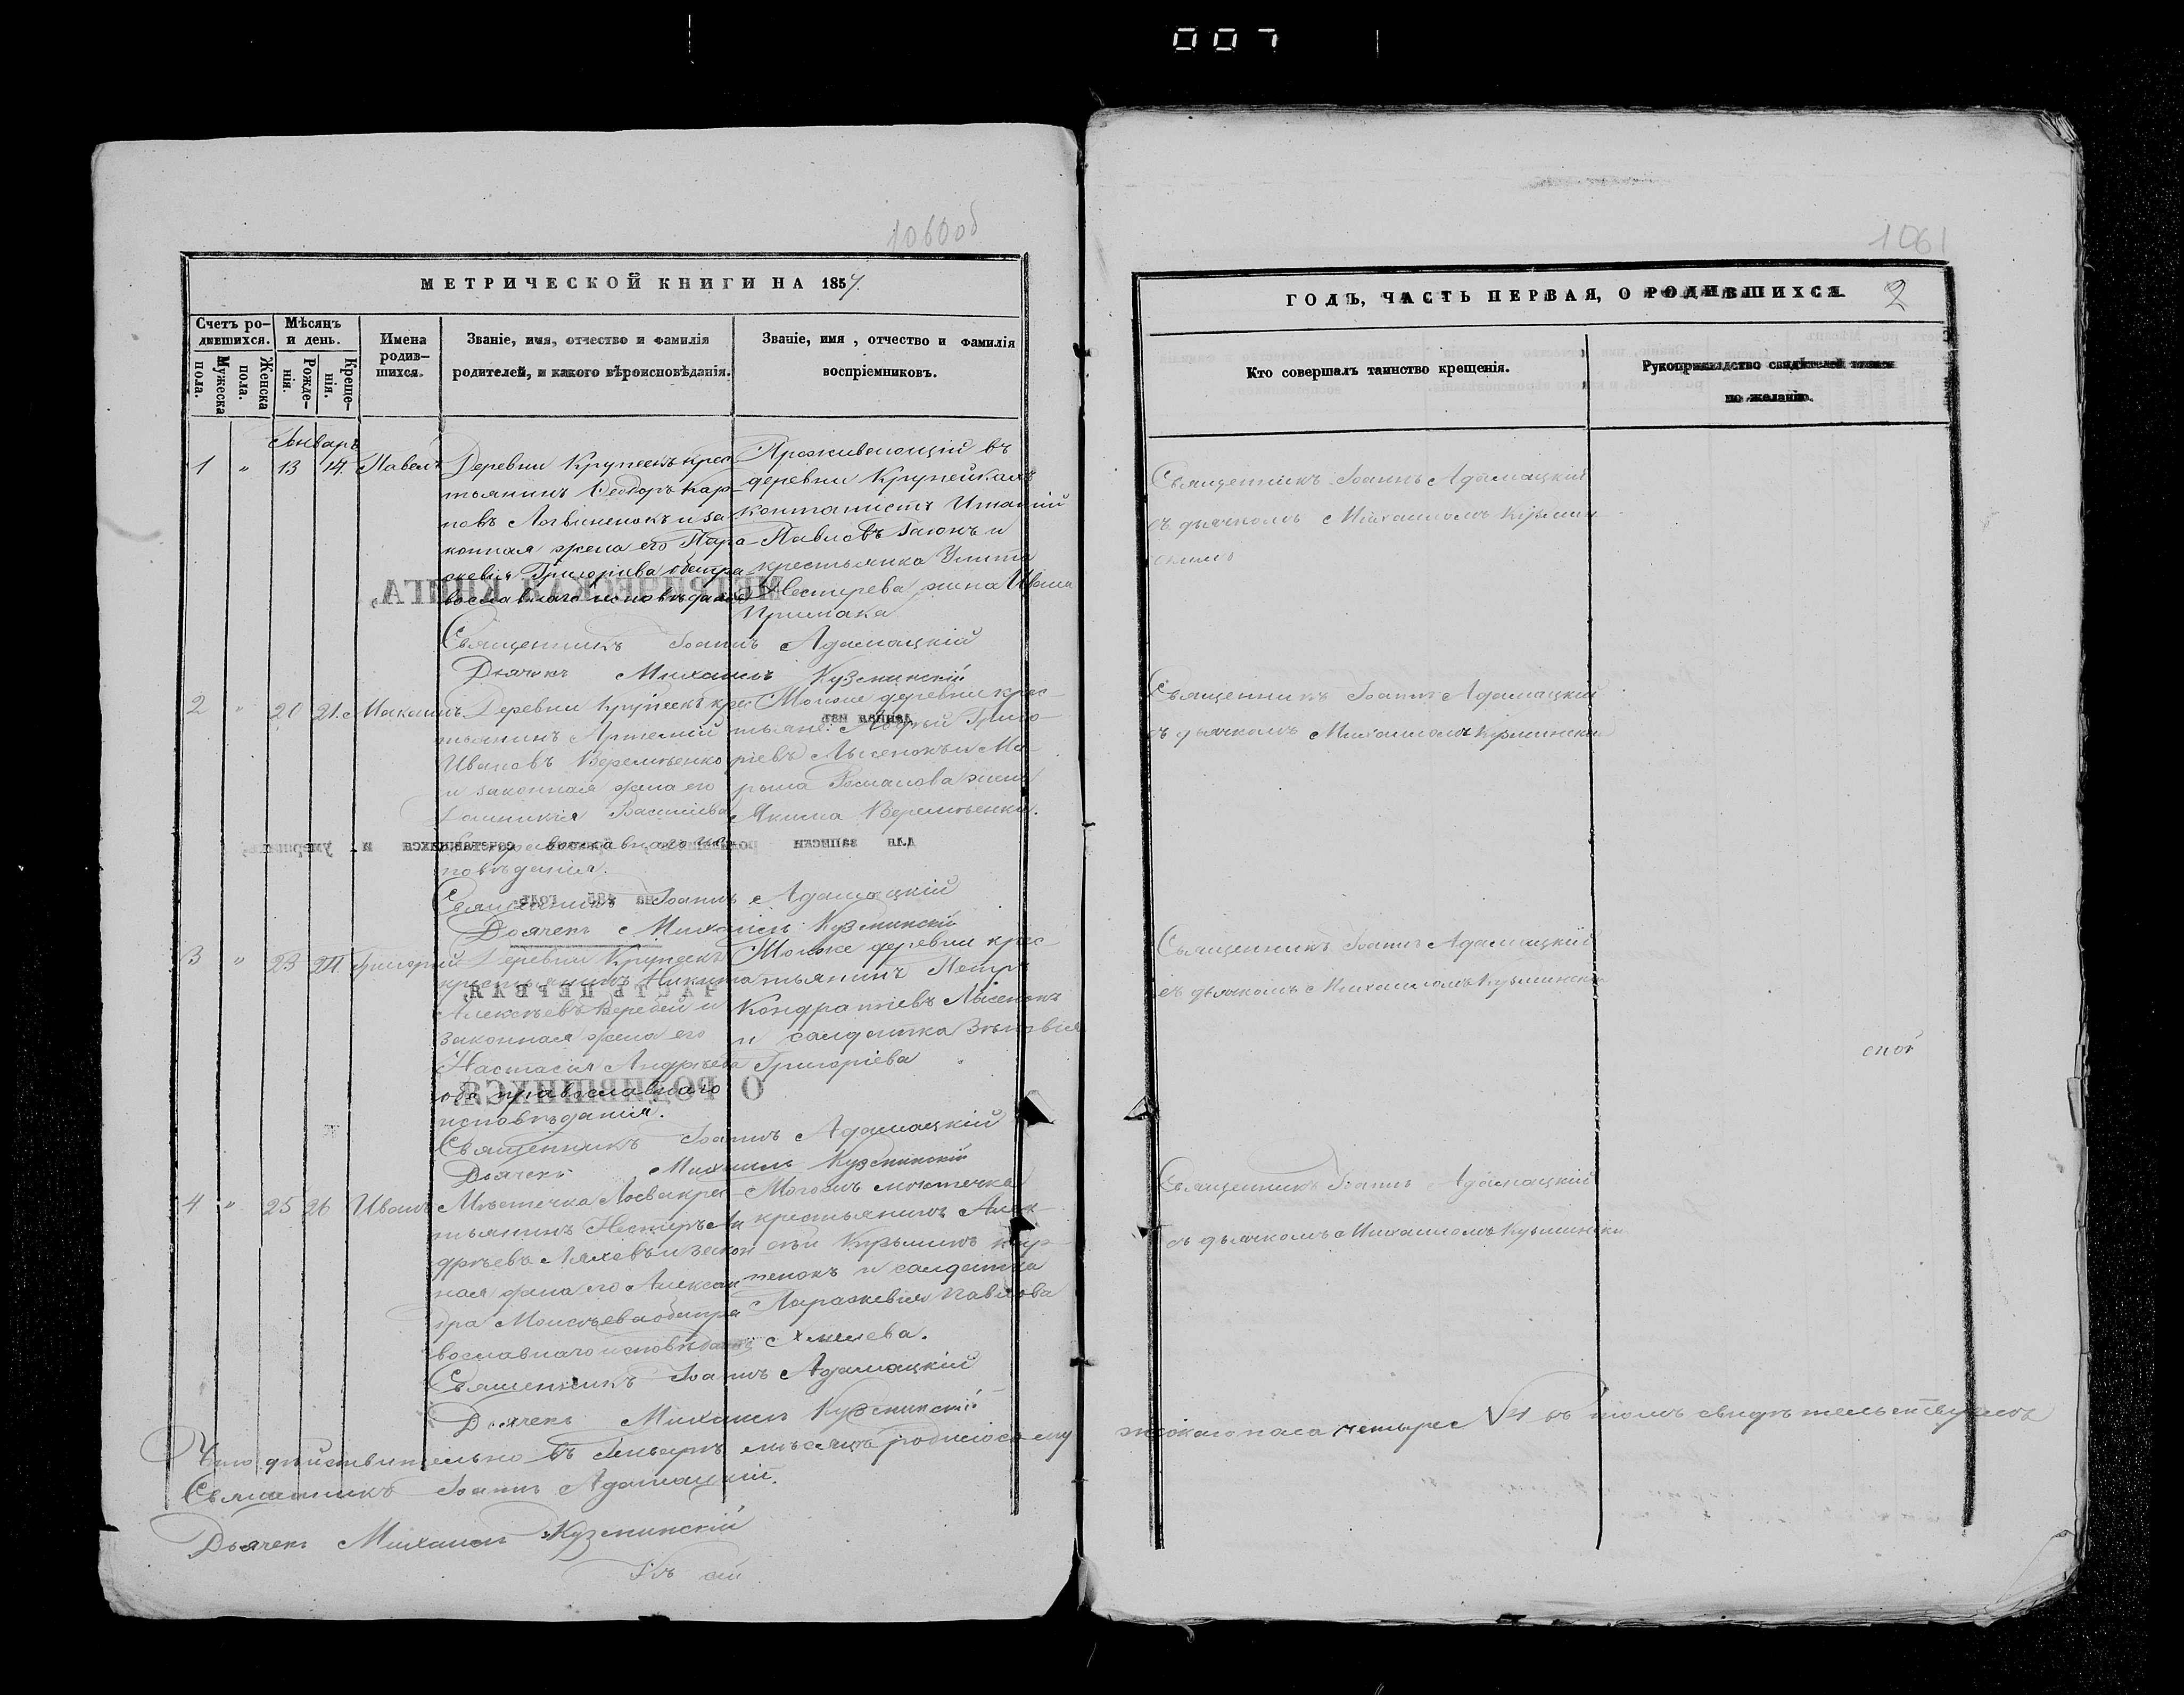 007
1060об
МЕТРИЧЕСКОЙ КНИГИ НА 1857.
Счетъ ро-
дившихся.
Мужеска
пола.
Женска
пола.
Мѣсяцъ
и день.
Рожде-
нія.
Креще-
нія.
Имена
родив-
шихся.
Званіе, имя, отчество и фамилія
родителей, и какого вѣроисповѣданія.
Званіе, имя, отчество и фамилія
воспріемниковъ.
Январь
1 " 13 14 Павелъ
Деревни Крупеекъ крес-
тьянинъ Ѳеодоръ Кар-
повъ Логвиненокъ и за-
конная жена его Пара-
скевія Григоріева оба пра-
вославнаго исповѣданія
Проживающій въ
деревни Крупейкахъ
Павловъ и
крестьянка Улита
Нестерева жена Ивана
Примака
Священникъ Іоаннъ Адамацкій
Дьячекъ Михаилъ Кузминскій
2 " 20 21 Максимъ
Деревни Крупеекъ крес-
тьянинъ Артемій
Ивановъ Веремѣенко
и законная жена его
Домникія Василіева
православнаго ис-
повѣданія.
Тойже деревни крес-
тьяне: Григо-
ріевъ Лысенокъ и Ма-
рьіна Романова жена
Якима Веремѣенка.
Священникъ Іоаннъ Адамацкій
Дьячекъ Михаилъ Кузминскій
3 " 23 Григорій
Деревни Крупеекъ
крестьянинъ Никита
Алексѣевъ Веребей и
законная жена его
Настасія Андреева
оба православнаго
исповѣданія.
Тойже деревни крес-
тьянинъ Петръ
Кондратіевъ Лысенокъ
и салдатка Зѣновія
Григоріева
Священникъ Іоаннъ Адамацкій
Дьячекъ Михаилъ Кузминскій
4 " 25 26 Иванъ
Мѣстечка Лоева крес-
тьянинъ Нестеръ Ан-
дреевъ Ляховъ и закон-
ная жена его Алексан-
дра Моисѣева оба пра-
вославнаго исповѣданія
Тогожъ мѣстечка
крестьянинъ Алек-
сѣй Кузьминъ Кар-
пенокъ и салдатка
Параскевія Павлова
Хмелева.
Священникъ Іоаннъ Адамацкій
Дьячекъ Михаилъ Кузминскій
Что дѣйствительно въ Январѣ мѣсяцѣ родилось му
Священникъ Іоаннъ Адамацкій.
Дьячекъ Михаилъ Кузминскій
1061
ГОДЪ, ЧАСТЬ ПЕРВАЯ, О РОДИВШИХСЯ 2
Кто совершалъ таинство крещенія.
Рукоприкладство свидѣтелей записи
по желанію.
Священникъ Іоаннъ Адамацкій
съ дьячкомъ Михаиломъ Кузьмин-
скимъ
Священникъ Іоаннъ Адамацкій
съ дьячкомъ Михаиломъ Кузминским
Священникъ Іоаннъ Адамацкій
съ дьячкомъ Михаиломъ Кузьминским
Священникъ Іоаннъ Адамацкій
съ дьячкомъ Михаиломъ Кузьминским
жескаго пола четыре 4 въ томъ свидѣтельствуемъ